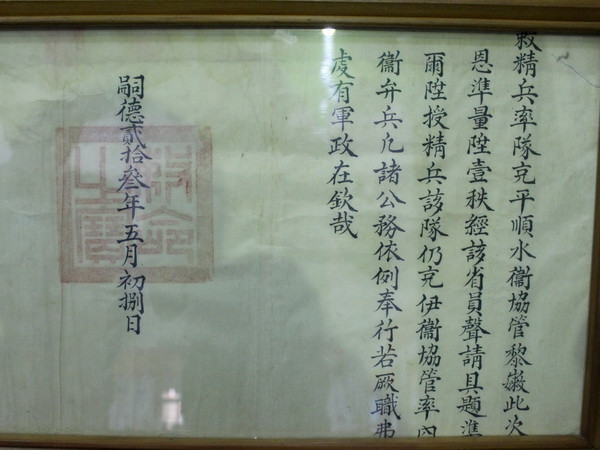 敕精兵率隊充平順水衞協管黎𢿱此次
恩準量陞壹秩經該省員聲請具題準
爾陞授精兵該隊仍充伊衞協管率內
衞弁兵凢諸公務依例奉行若厥職弗
虔有軍政在欽哉
嗣德貳拾叁年五月初捌日